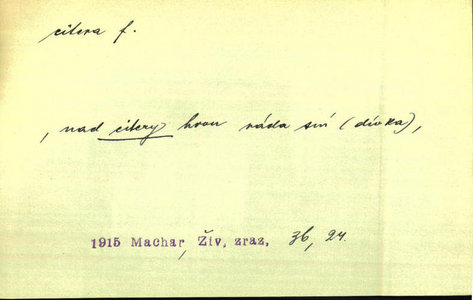 citera f.
, nad citery hrou ráda sní (dívka),
1915 Machar, Živ. zraz. 36, 24.